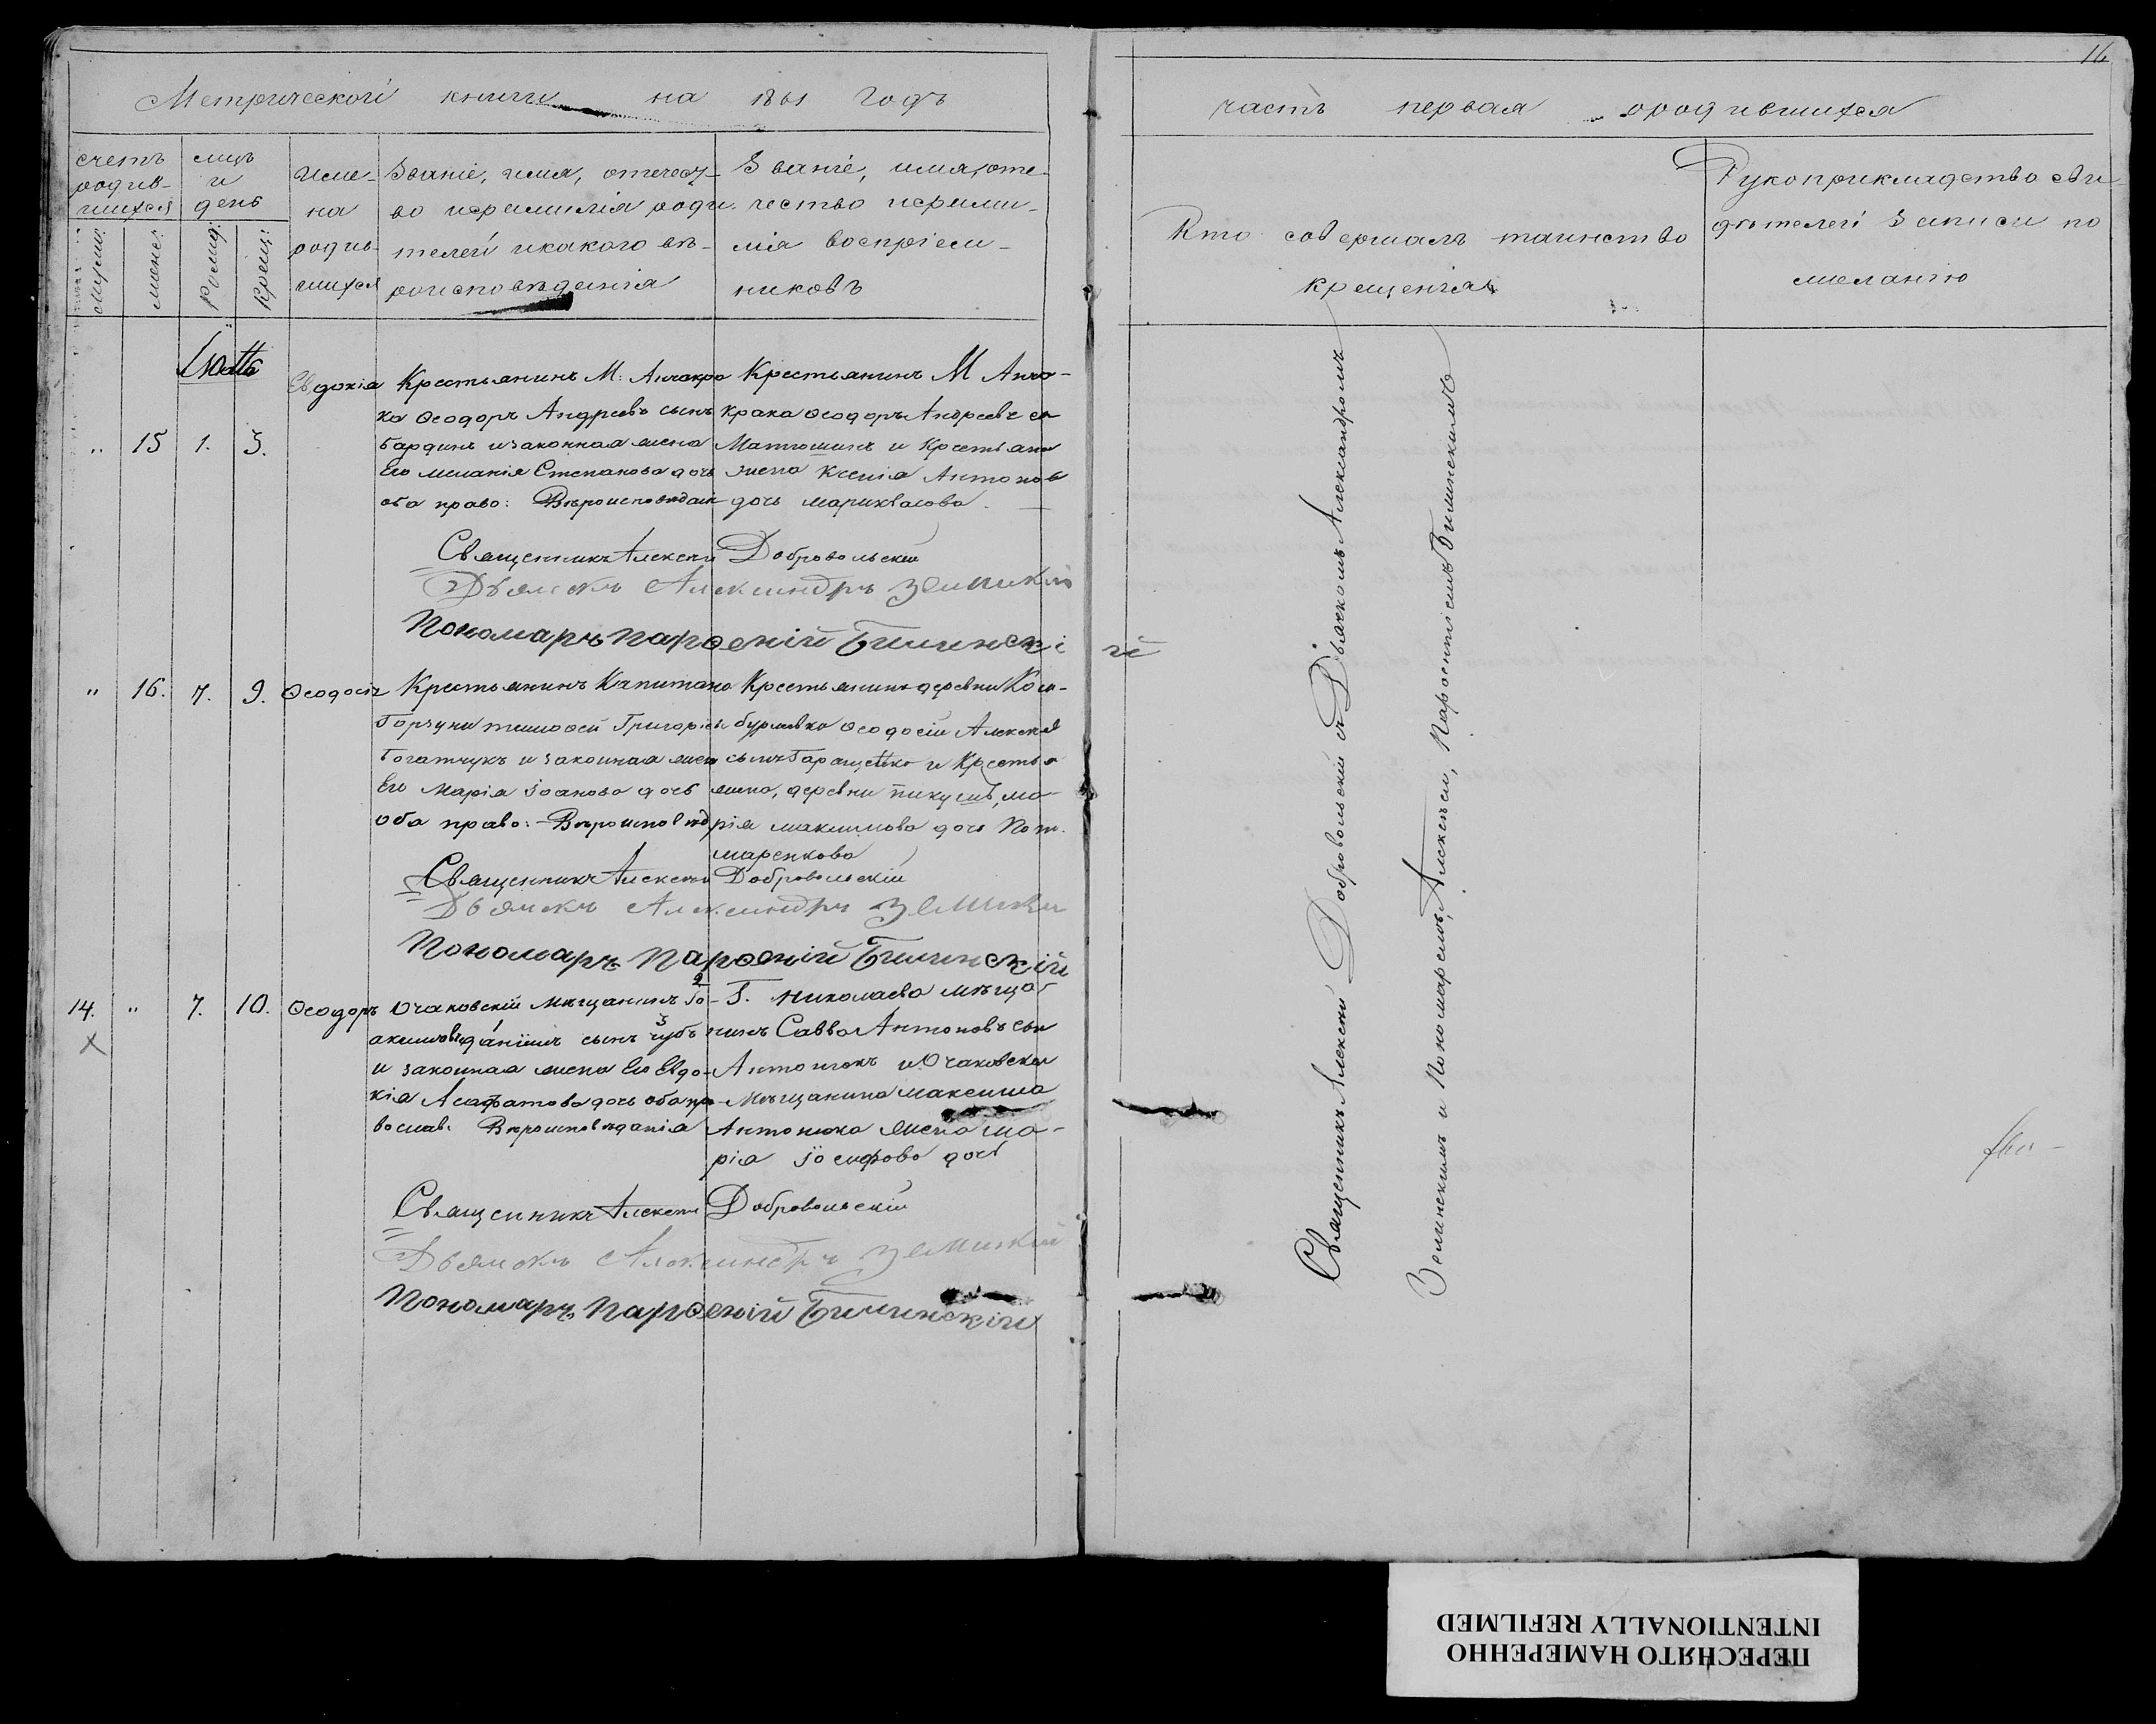 Метрической книги на 1861 годъ
счетъ родив-шихся
мцъ и день
Име-на родив-шихся
Званіе, имя, отечест-
во ифамилія роди-
телей икакого вѣ-
роисповѣданія
Званіе, имя, оте-
чество ифами-
лія воспріем-
никовъ
мужс:
женс:
Рожд:
Крещ:
" 15 1. 3.
Евдокія
Крестьянинъ М: Анчакра
ка Ѳеодоръ Андреевъ сынъ
Бардинъ изаконная жена
Его меланія Степанова дочь
оба право: Вѣроисповѣдан
Крестьянинъ М Анча-
крака Ѳеодоръ Андреевъ
Матюшинъ и Крестьяни
жена Ксенія Антонов
дочь
Священникъ Алексѣй Добровольскій
Дьячокъ Александръ
Пономаръ Парѳеній Билинскій
" 16. 7. 9.
Ѳеодосій
Крестьянинъ Капитана
Григорьев
Богатчукъ и законная жена
Его Марія Іоанова дочь
оба право: Вѣроисповѣд
Крестьянинъ деревни Ком-
буръевка Ѳеодосій Алексѣев
сынъ Геращенко и Крестья
жена, деревни ма-
рія максимова дочь Поно-
маренкова
Священникъ Алексѣй Добровольскій
Дьячокъ Александръ
Пономаръ Парѳеній Билинскій
14. " 7. 10.
Ѳеодоръ
Очаковскій Мѣщанинъ Іо-
сынъ
и законная жена Его Евдо-
кія Асафатова дочь оба пра-
вослав: Вѣроисповѣданія
Г. Николаева мѣща-
нинъ Савва Антоновъ сын
Антонюкъ и Очаковска
Мѣщанина максима
Антонюка жена ма-
рія Іосифова дочь
Священникъ Алексѣй Добровольскій
Дьячокъ Александръ
Пономаръ Парѳеній Билинскій
16
часть первая ородившихся
Кто совершалъ таинство
крещенія
Рукоприкладство сви-
дѣтелей записи по
желанію
Священникъ Алексѣй Добровольскій съ Дьячкомъ Александромъ
и Пономаремъ, Парѳеніемъ Билинскимъ
ПЕРЕСНЯТО НАМЕРЕННО
INTENTIONALLY REFILMED